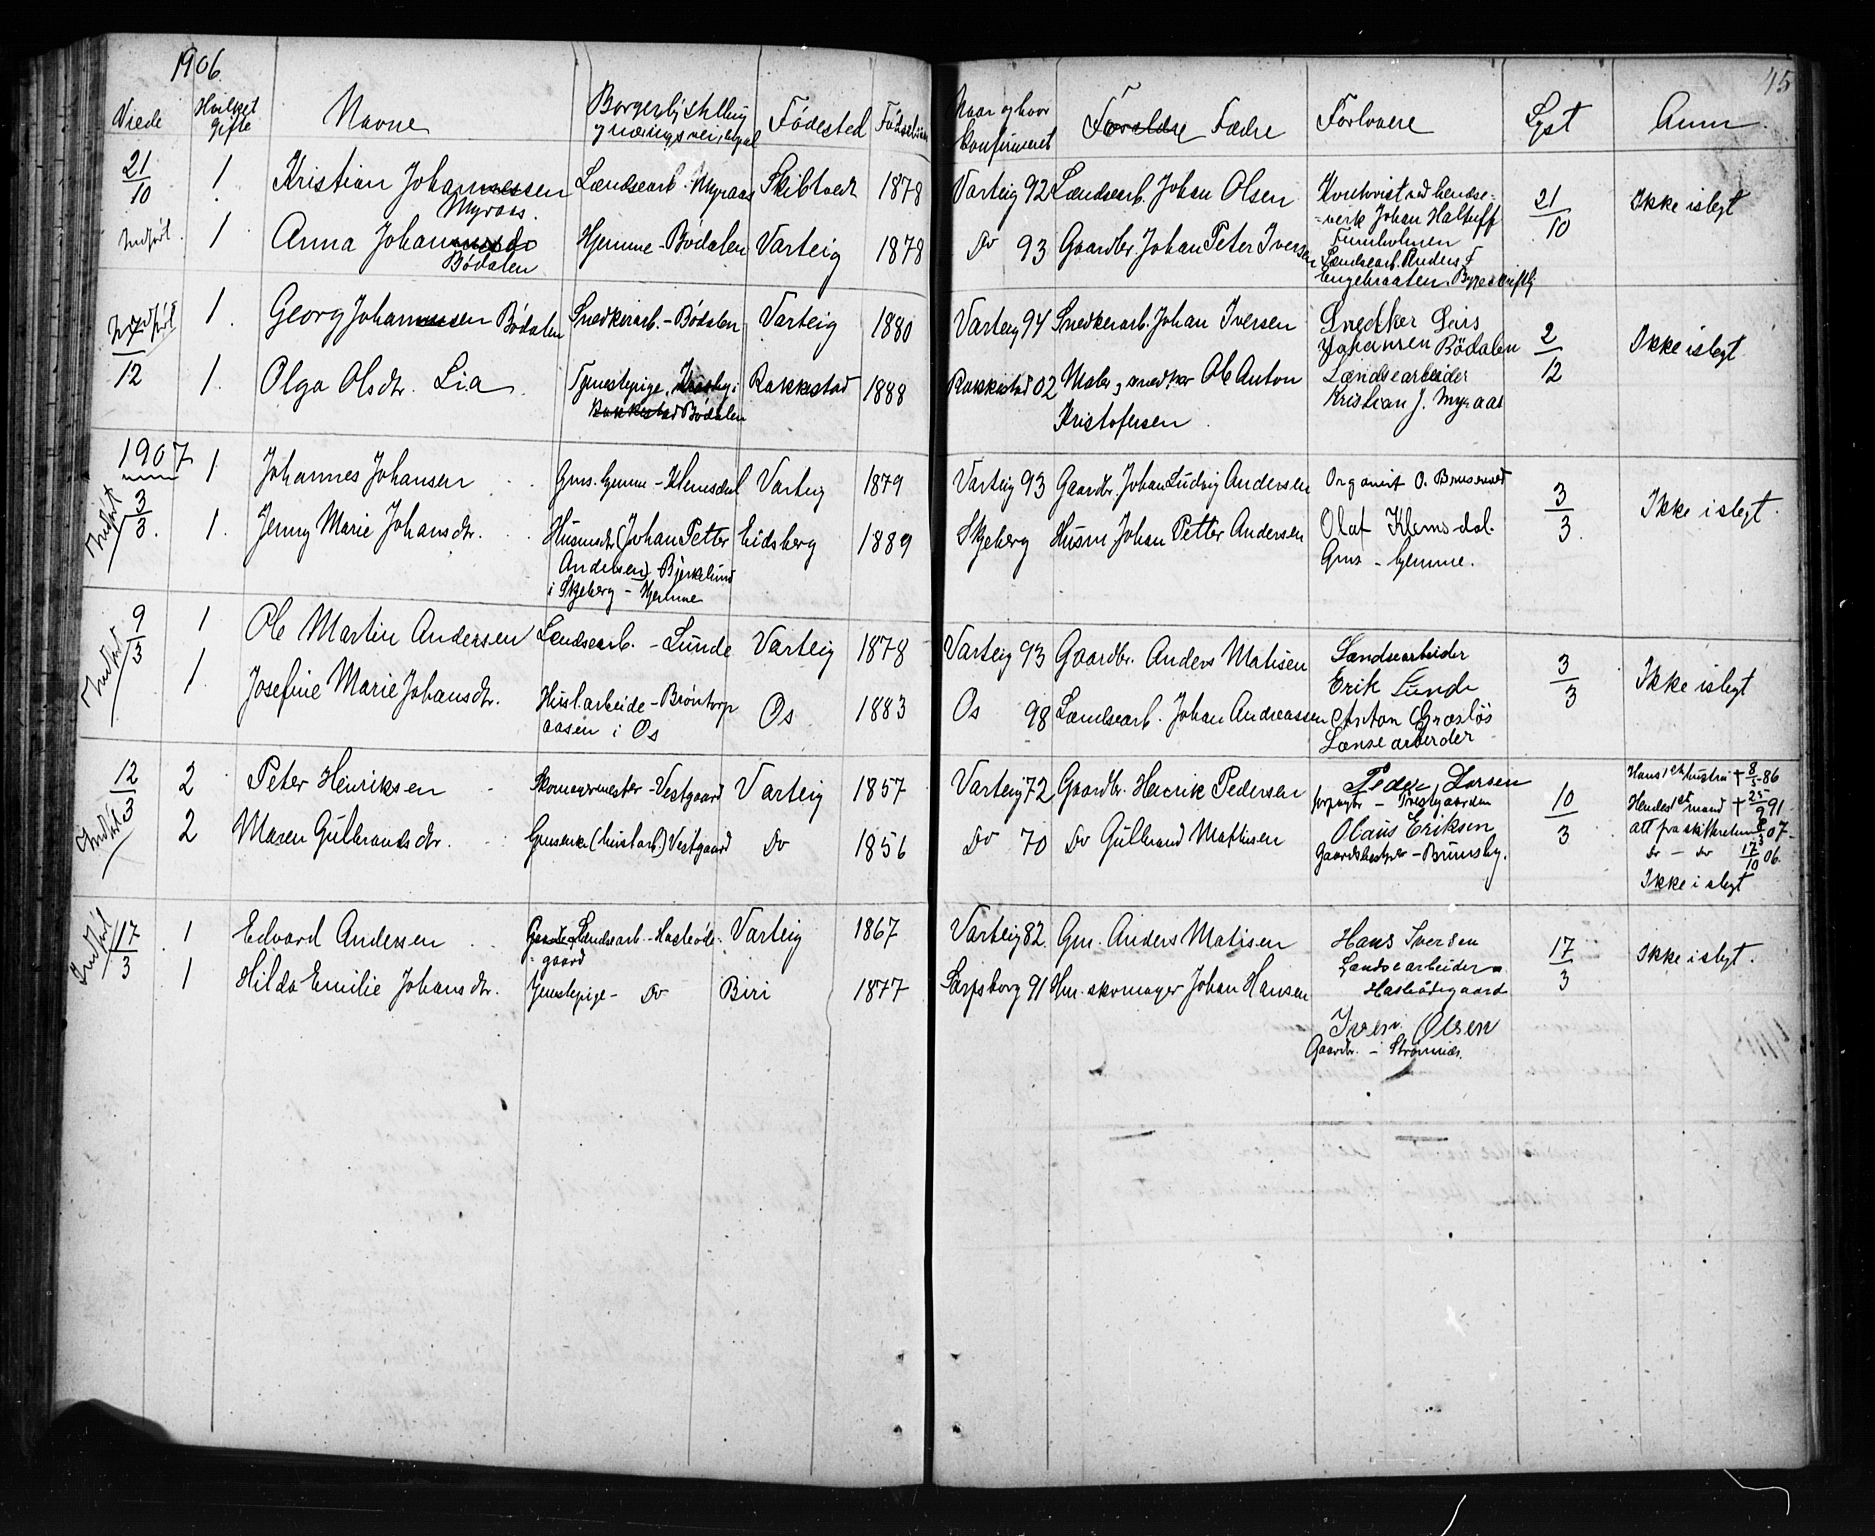 1906.
45
Viede Hvilket Gifte Navne Borgerlig Stilling og næringsvei, bopæl Fødested Fødselsaar Naar og hvor confirmeret Forældre Fædre Forlovere Lyst Anm.
21/10 1. Kristian Johannessen Lændsearb. Myraas Skibtvedt 1878 Varteig 92 Lændsearb. Johan Olsen 21/10 Ikke i slegt
Myraas. verk Johan Haltuff
Indført. 1 Anna Johannesdr Hjemme - Bødalen Varteig 1878 Do 93 Gaardbr. Johan Peter Iversen
Bødalen Lændsearb. Anders F
Indført 1. Georg Johannessen Bødalen Snedkerarb. - Bødalen Varteig 1880 Varteig 94 Snedkerarb. Johan Iversen Snedker Lars 2/12 Ikke i slegt
Johansen Bødalen
12 1. Olga Olsdtr. Lia Tjenestepige, Rakkestad 1888 Rakkestad 02 Maler og snedker Ole Anton Lændsearbeider
Rakkestad Bødalen Kristofersen Kristian J. Myraas
1907
Indført 3/3. 1 Johannes Johansen Gms. hjemme - Klemsdal Varteig 1879 Varteig 93 Gaardbr. Johan Ludvig Andersen Organist O. 3/3 Ikke i slegt.
1. Jenny Marie Johansdtr. Husmdtr (Johan Petter Eidsberg 1889 Skjeberg Husm Johan Petter Andersen Olaf Klemsdal.
Andersen) Bjerkelund Gms - hjemme.
i Skjeberg - Hjemme
Indført 9/3 1 Ole Martin Andersen Lændsearb. - Lunde Varteig 1878 Varteig 93 Gaardbr. Anders Matisen Lændsearbeider 3/3 Ikke i slegt
Erik Lunde
1. Josefine Marie Johansdtr. Husl. arbeide - Brøntorp Os 1883 Os 98 Lændsearb. Johan Andreassen Anton Graslös
aasen i Os Lænsearbeider
Indført 12/3 2 Peter Henriksen Skomagermester - Vestgaard Varteig 1857 Varteig 72 Gaardbr. Henrik Pedersen Peder Larsen 10/3 Hans 1ste hustru † 8/5-86
forpagter - Vestgaarden Hendes 1ste mand † 25/9 91
2 Maren Gulbrandsdtr. Gmsenke (husl arb) Vestgaard Do 1856 Do 70 Do Gulbrand Mathisen Olaus Eriksen Att fra skifteretten 8/3 07
Gaardsbestyrer - Brunsby. Do - Do 17/10 06.
Ikke i slegt
Indført 17/3 1 Edvard Andersen Lændsearb - Hasleöde- Varteig 1867 Varteig 82. Gm. Anders Matisen Hans Iversen 17/3 Ikke i slegt.
gaard Lændsearbeider
1 Hilda Emilie Johansdtr. Tjenestepige - Do Biri 1877 Sarpsborg 91 Hm. skomager Johan Hansen Haslödegaard
Iver Olsen
Gaardbr. - Strømnes.